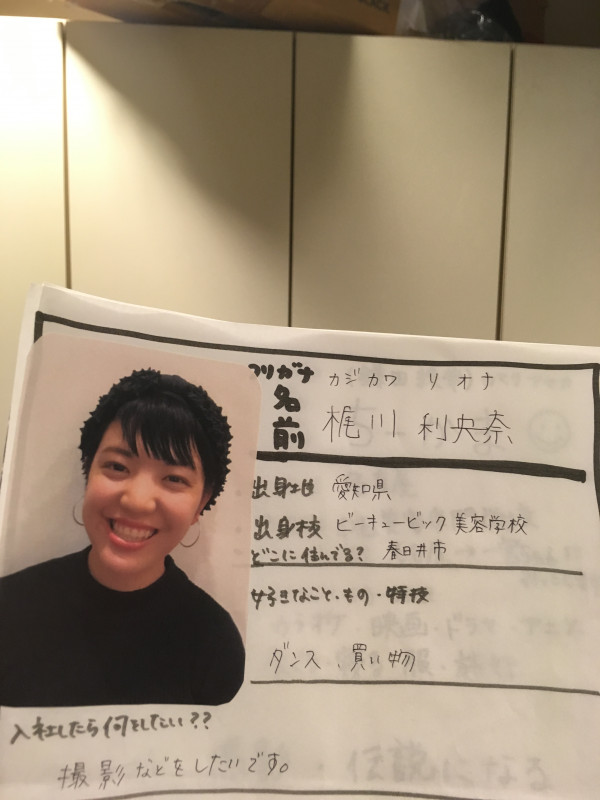 フリガナ カジカワ リオナ
名前 梶川 利央奈
出身地 愛知県
出身校 ビーキュービック美容学校
どこに住んでる? 春日井市
好きなこと・もの・特技
ダンス、買い物
入社したら何をしたい??
撮影などをしたいです。
伝説になる